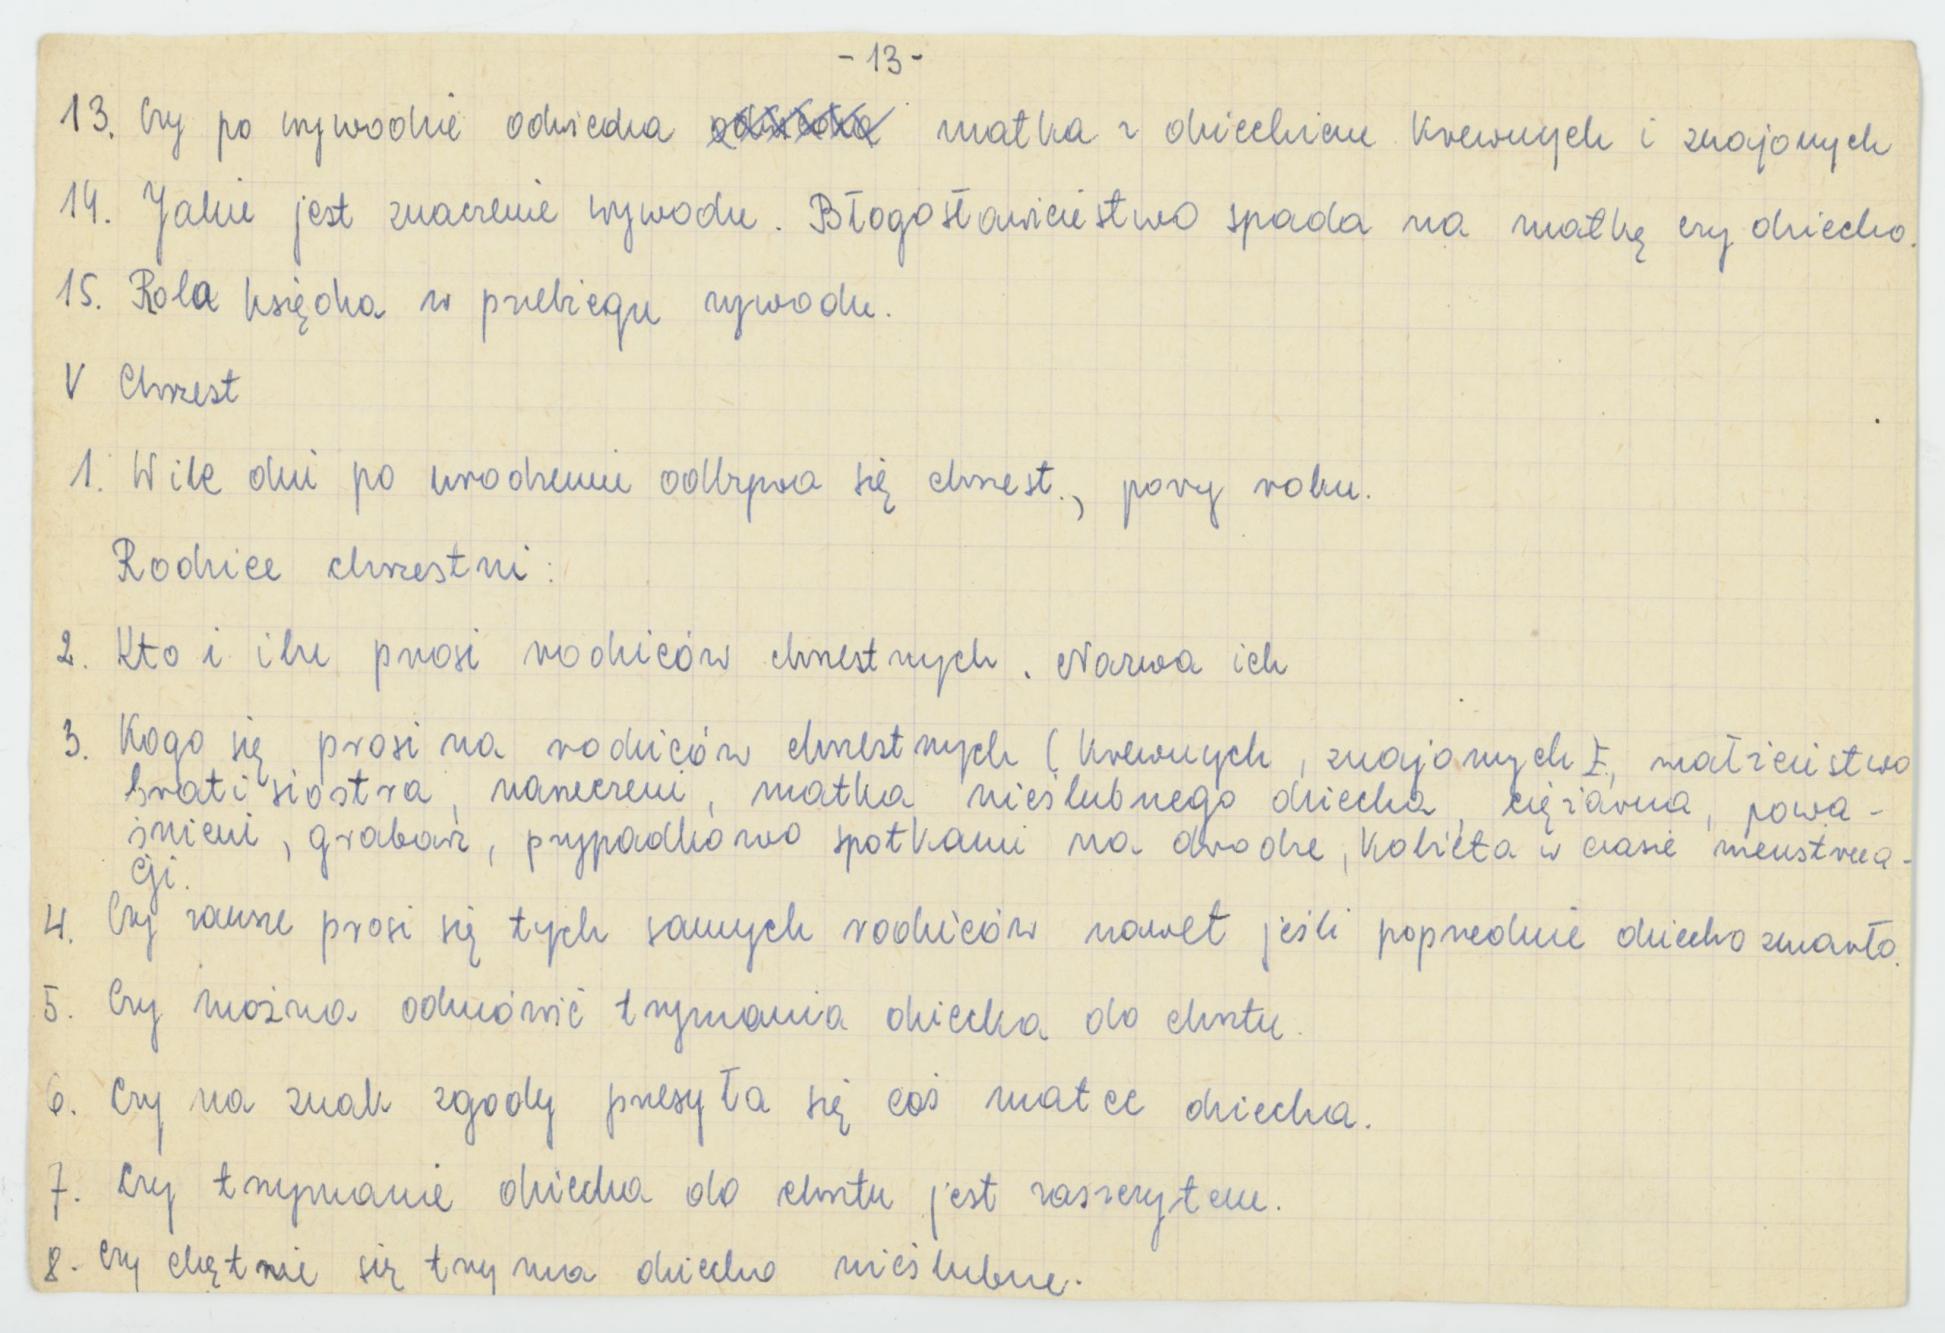 - 13 -
13. Czy po wywodzie odwiedza matka z dzieckiem krewnych i znajomych
14. Jakie jest znaczenie wywodu. Błogosławieństwo spada na matkę czy dziecko.
15. Rola księdza w przebiegu wywodu.
V Chrzest
1. W ile dni po urodzeniu odbywa się chrzest., pory roku.
Rodzice chrzestni:
2. Kto i ilu prosi rodziców chrzestnych. Nazwa ich
3. Kogo się prosi na rodziców chrzestnych (krewnych, znajomych), małżeństwo
brat i siostra, narzeczeni, matka nieślubnego dziecka, ciężarna, powa-
śnieni, grabarz, przypadkowo spotkani na drodze, kobieta w czasie menstrua-
cji.
4. Czy zawsze prosi się tych samych rodziców nawet jeśli poprzednie dziecko zmarło.
5. Czy można odmówić trzymania dziecka do chrztu.
6. Czy na znak zgody przesyła się coś matce dziecka.
7. Czy trzymanie dziecka do chrztu jest zaszczytem.
8. Czy chętnie się trzyma dziecko nieślubne.